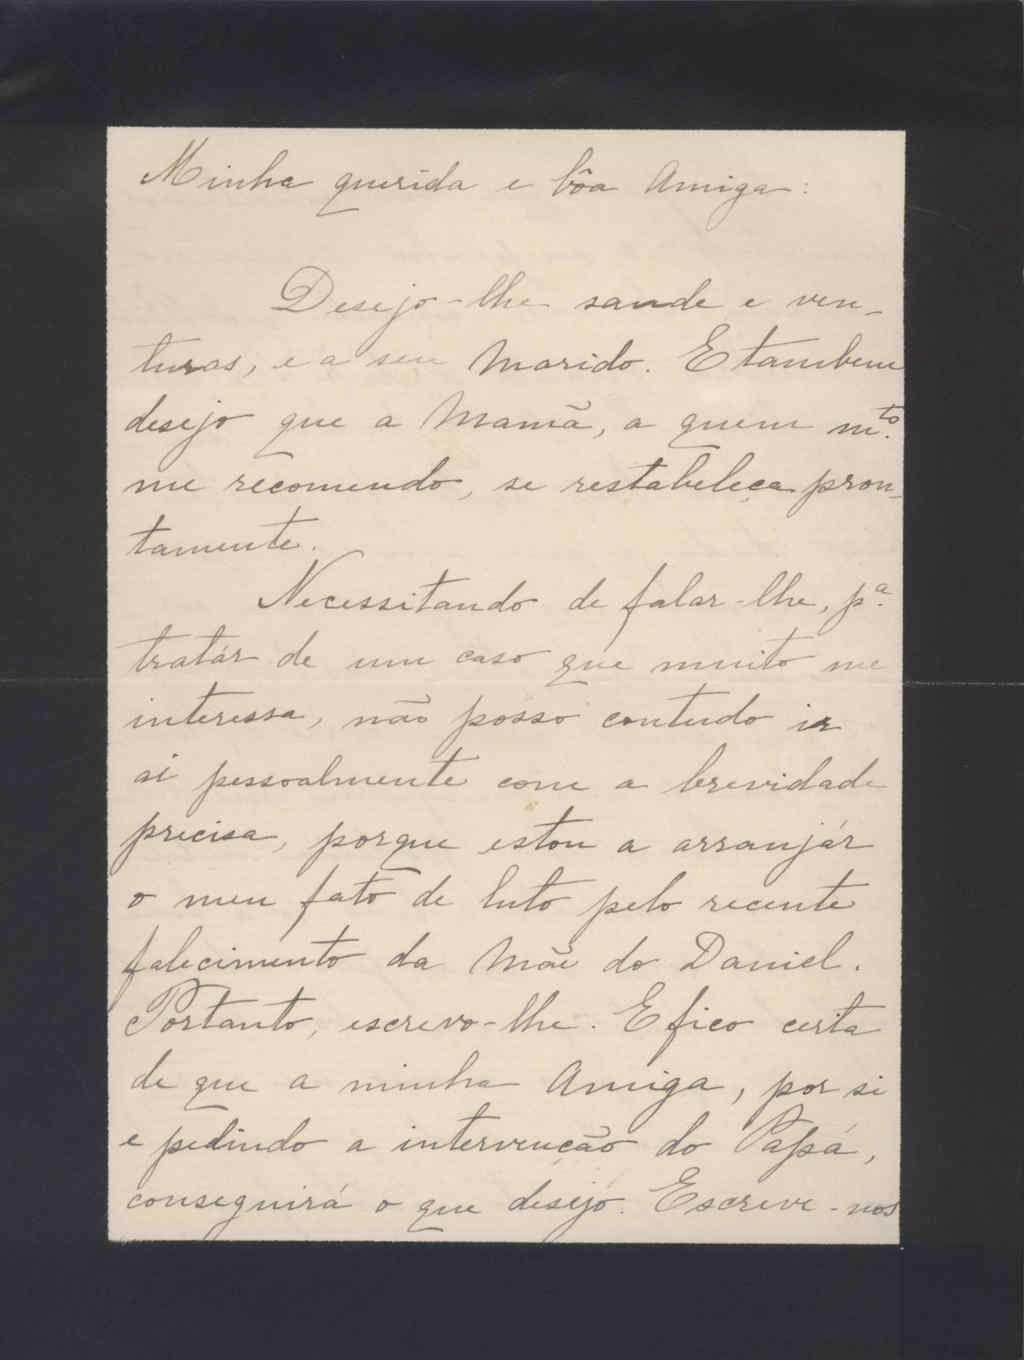 Minha querida e bôa Amiga:
Desejo-lhe saude e ven-
turas, e a seu Marido. E tambem
desejo que a Mamã, a quem m.to
me recomendo, se restabeleça pron-
tamente.
Necessitando de falar-lhe, p.a
tratár de um caso que muito me
interessa, não posso contudo ir
aí pessoalmente com a brevidade
precisa, porque estou a arranjár
o meu fato de luto pelo recente
falecimento da Mãe do Daniel.
Portanto, escrevo-lhe. E fico certa
de que a minha Amiga, por si
e pedindo a intervenção do Papá,
conseguirá o que desejo. Escreve-nos